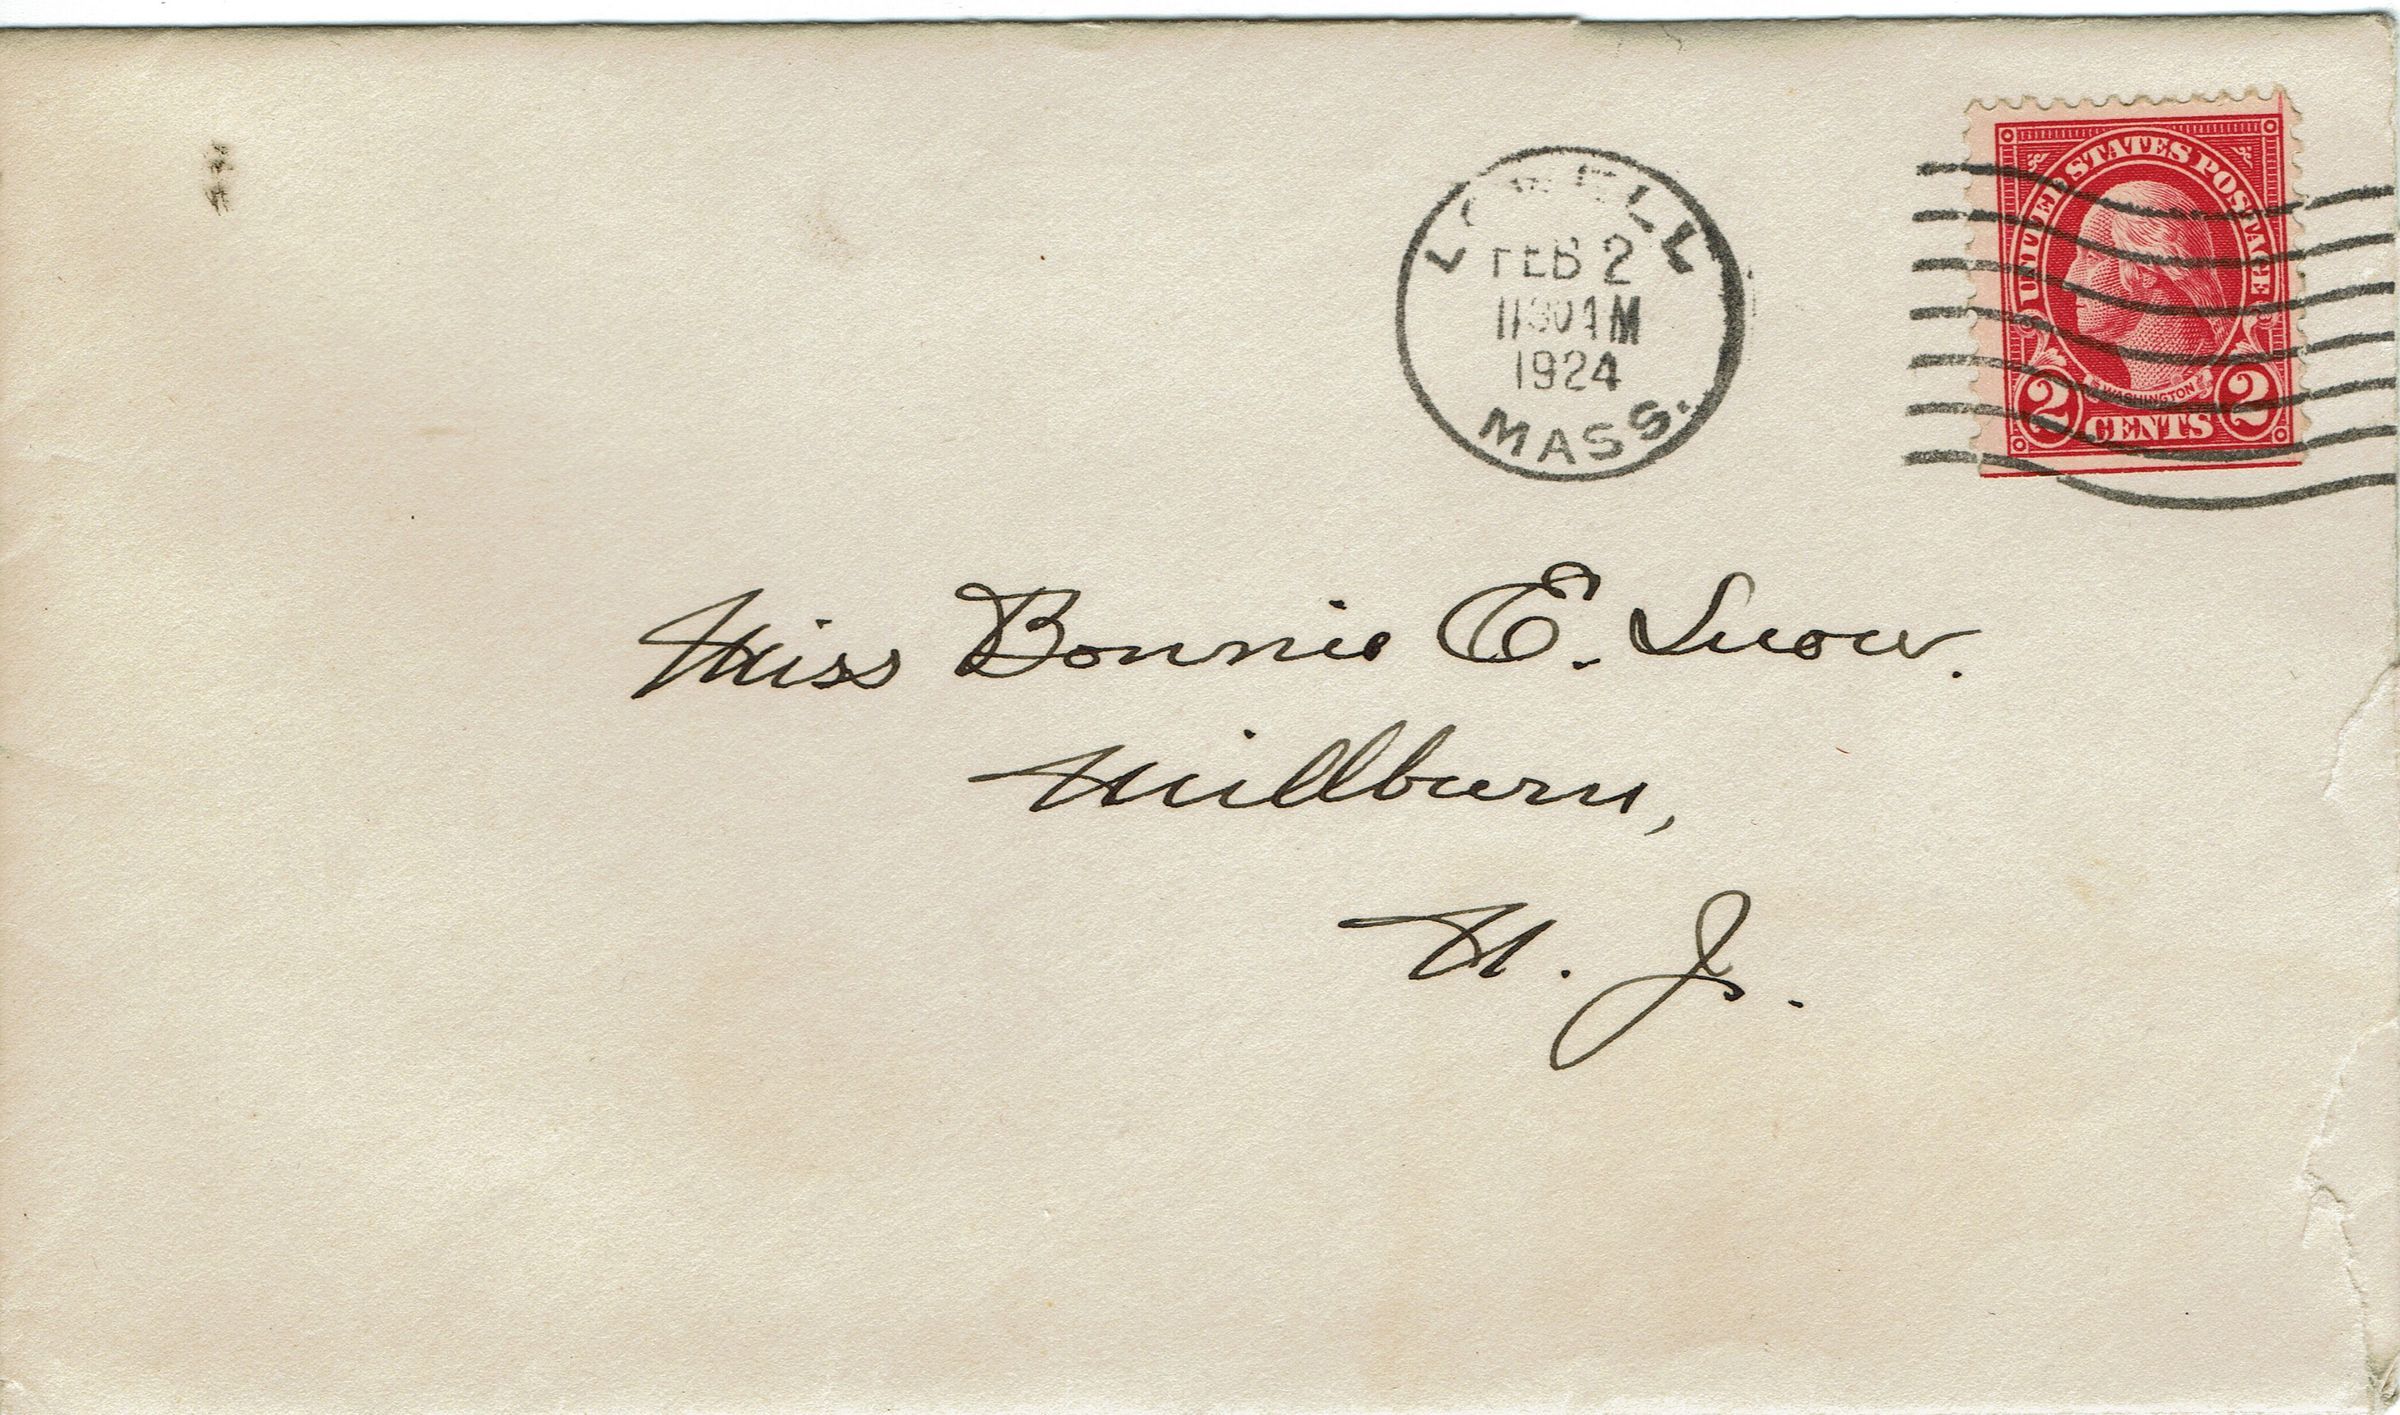 LOWELL
FEB 2
1130 AM
1924
MASS.
UNITED STATES POSTAGE
WASHINGTON
2 CENTS 2
Miss Bonnie E. Snow.
Millburn,
N. J.